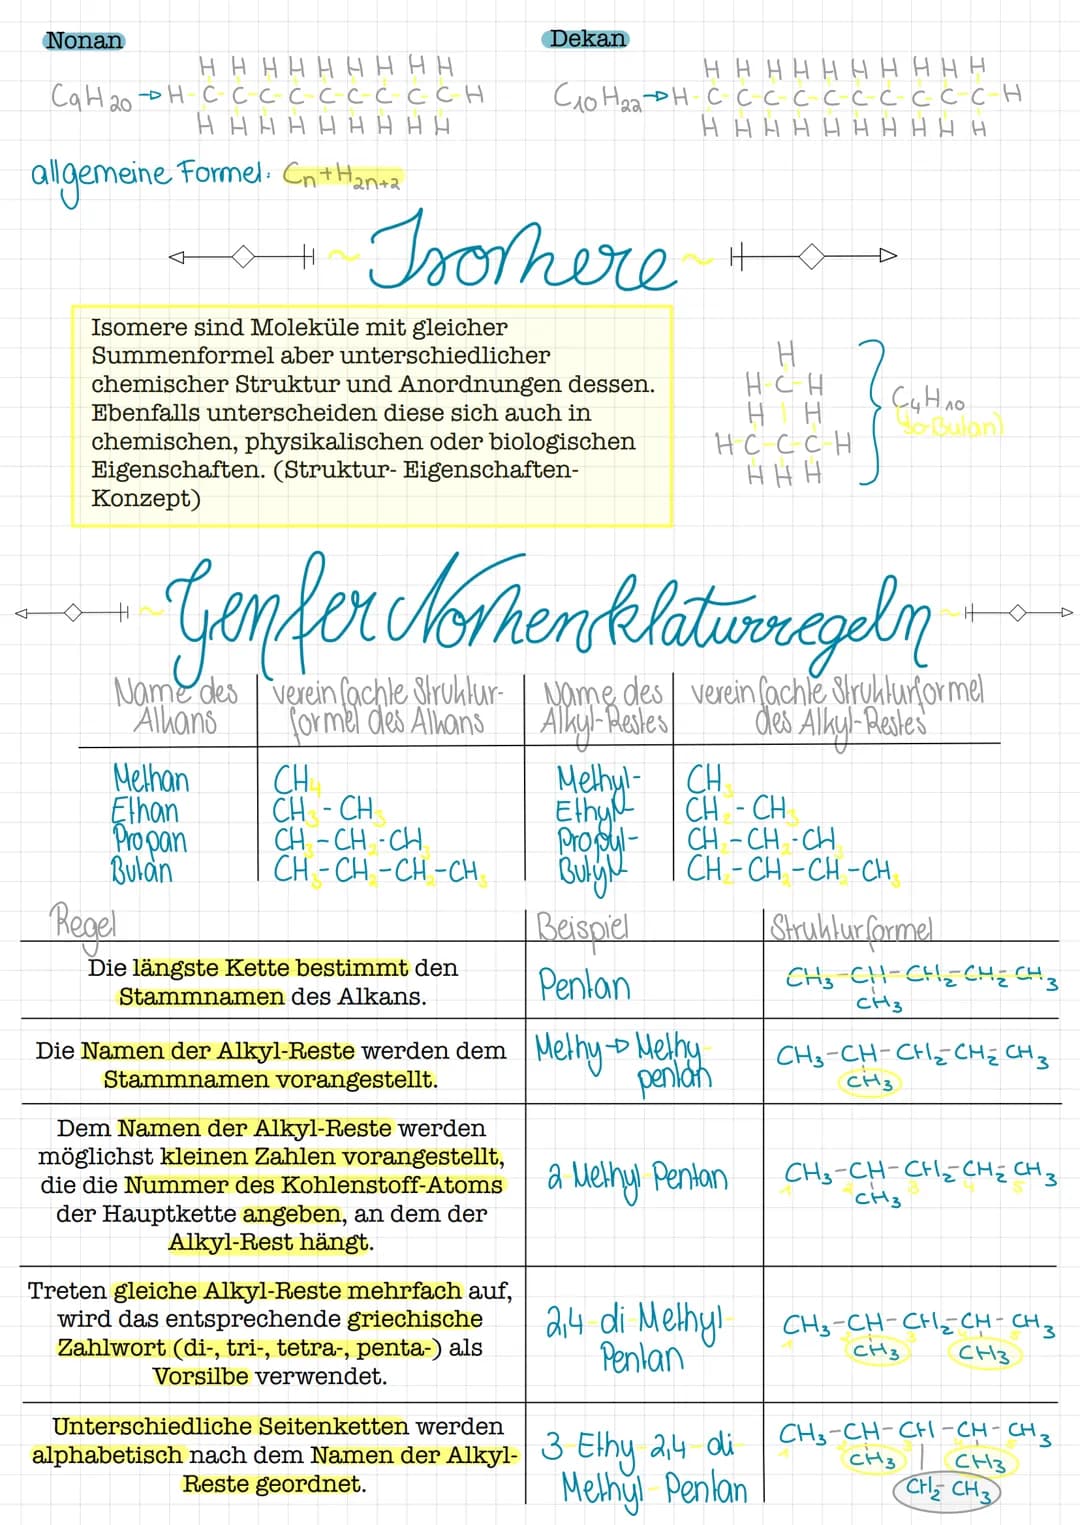 Nonan
Dekan
H H H H H H H H H
C9H20 → H-C-C-C-C-C-C-C-C-C-H
H H H H H H H H H
H H H H H H H H H H
C10H22 → H-C-C-C-C-C-C-C-C-C-C-H
H H H H H H H H H H
allgemeine Formel: Cn+H2n+2
~ Isomere ~
Isomere sind Moleküle mit gleicher
Summenformel aber unterschiedlicher
chemischer Struktur und Anordnungen dessen.
Ebenfalls unterscheiden diese sich auch in
chemischen, physikalischen oder biologischen
Eigenschaften. (Struktur- Eigenschaften-
Konzept)
H
H-C-H
H | H
H-C-C-C-H
H H H
C4H10
Butan)
~ Genfer Nomenklaturregeln ~
Name des
Alkans
vereinfachte Struktur-
formel des Alkans
Name des
Alkyl-Restes
vereinfachte Strukturformel
des Alkyl-Restes
Methan CH4 Methyl- CH3
Ethan CH3-CH3 Ethyl- CH2-CH3
Propan CH3-CH2-CH3 Propyl- CH2-CH2-CH3
Butan CH3-CH2-CH2-CH3 Butyl- CH2-CH2-CH2-CH3
Regel
Beispiel
Strukturformel
Die längste Kette bestimmt den
Stammnamen des Alkans.
Pentan
CH3-CH-CH2-CH2-CH3
CH3
Die Namen der Alkyl-Reste werden dem
Stammnamen vorangestellt.
Methy→Methy-
pentan
CH3-CH-CH2-CH2-CH3
CH3
Dem Namen der Alkyl-Reste werden
möglichst kleinen Zahlen vorangestellt,
die die Nummer des Kohlenstoff-Atoms
der Hauptkette angeben, an dem der
Alkyl-Rest hängt.
2-Methyl-Pentan
CH3-CH-CH2-CH2-CH3
1 2 3 4 5
CH3
Treten gleiche Alkyl-Reste mehrfach auf,
wird das entsprechende griechische
Zahlwort (di-, tri-, tetra-, penta-) als
Vorsilbe verwendet.
2,4-di-Methyl-
Pentan
CH3-CH-CH2-CH-CH3
1 2 3 4 5
CH3 CH3
Unterschiedliche Seitenketten werden
alphabetisch nach dem Namen der Alkyl-
Reste geordnet.
3-Ethy-2,4-di-
Methyl-Pentan
CH3-CH-CH-CH-CH3
CH3 | CH3
CH2-CH3